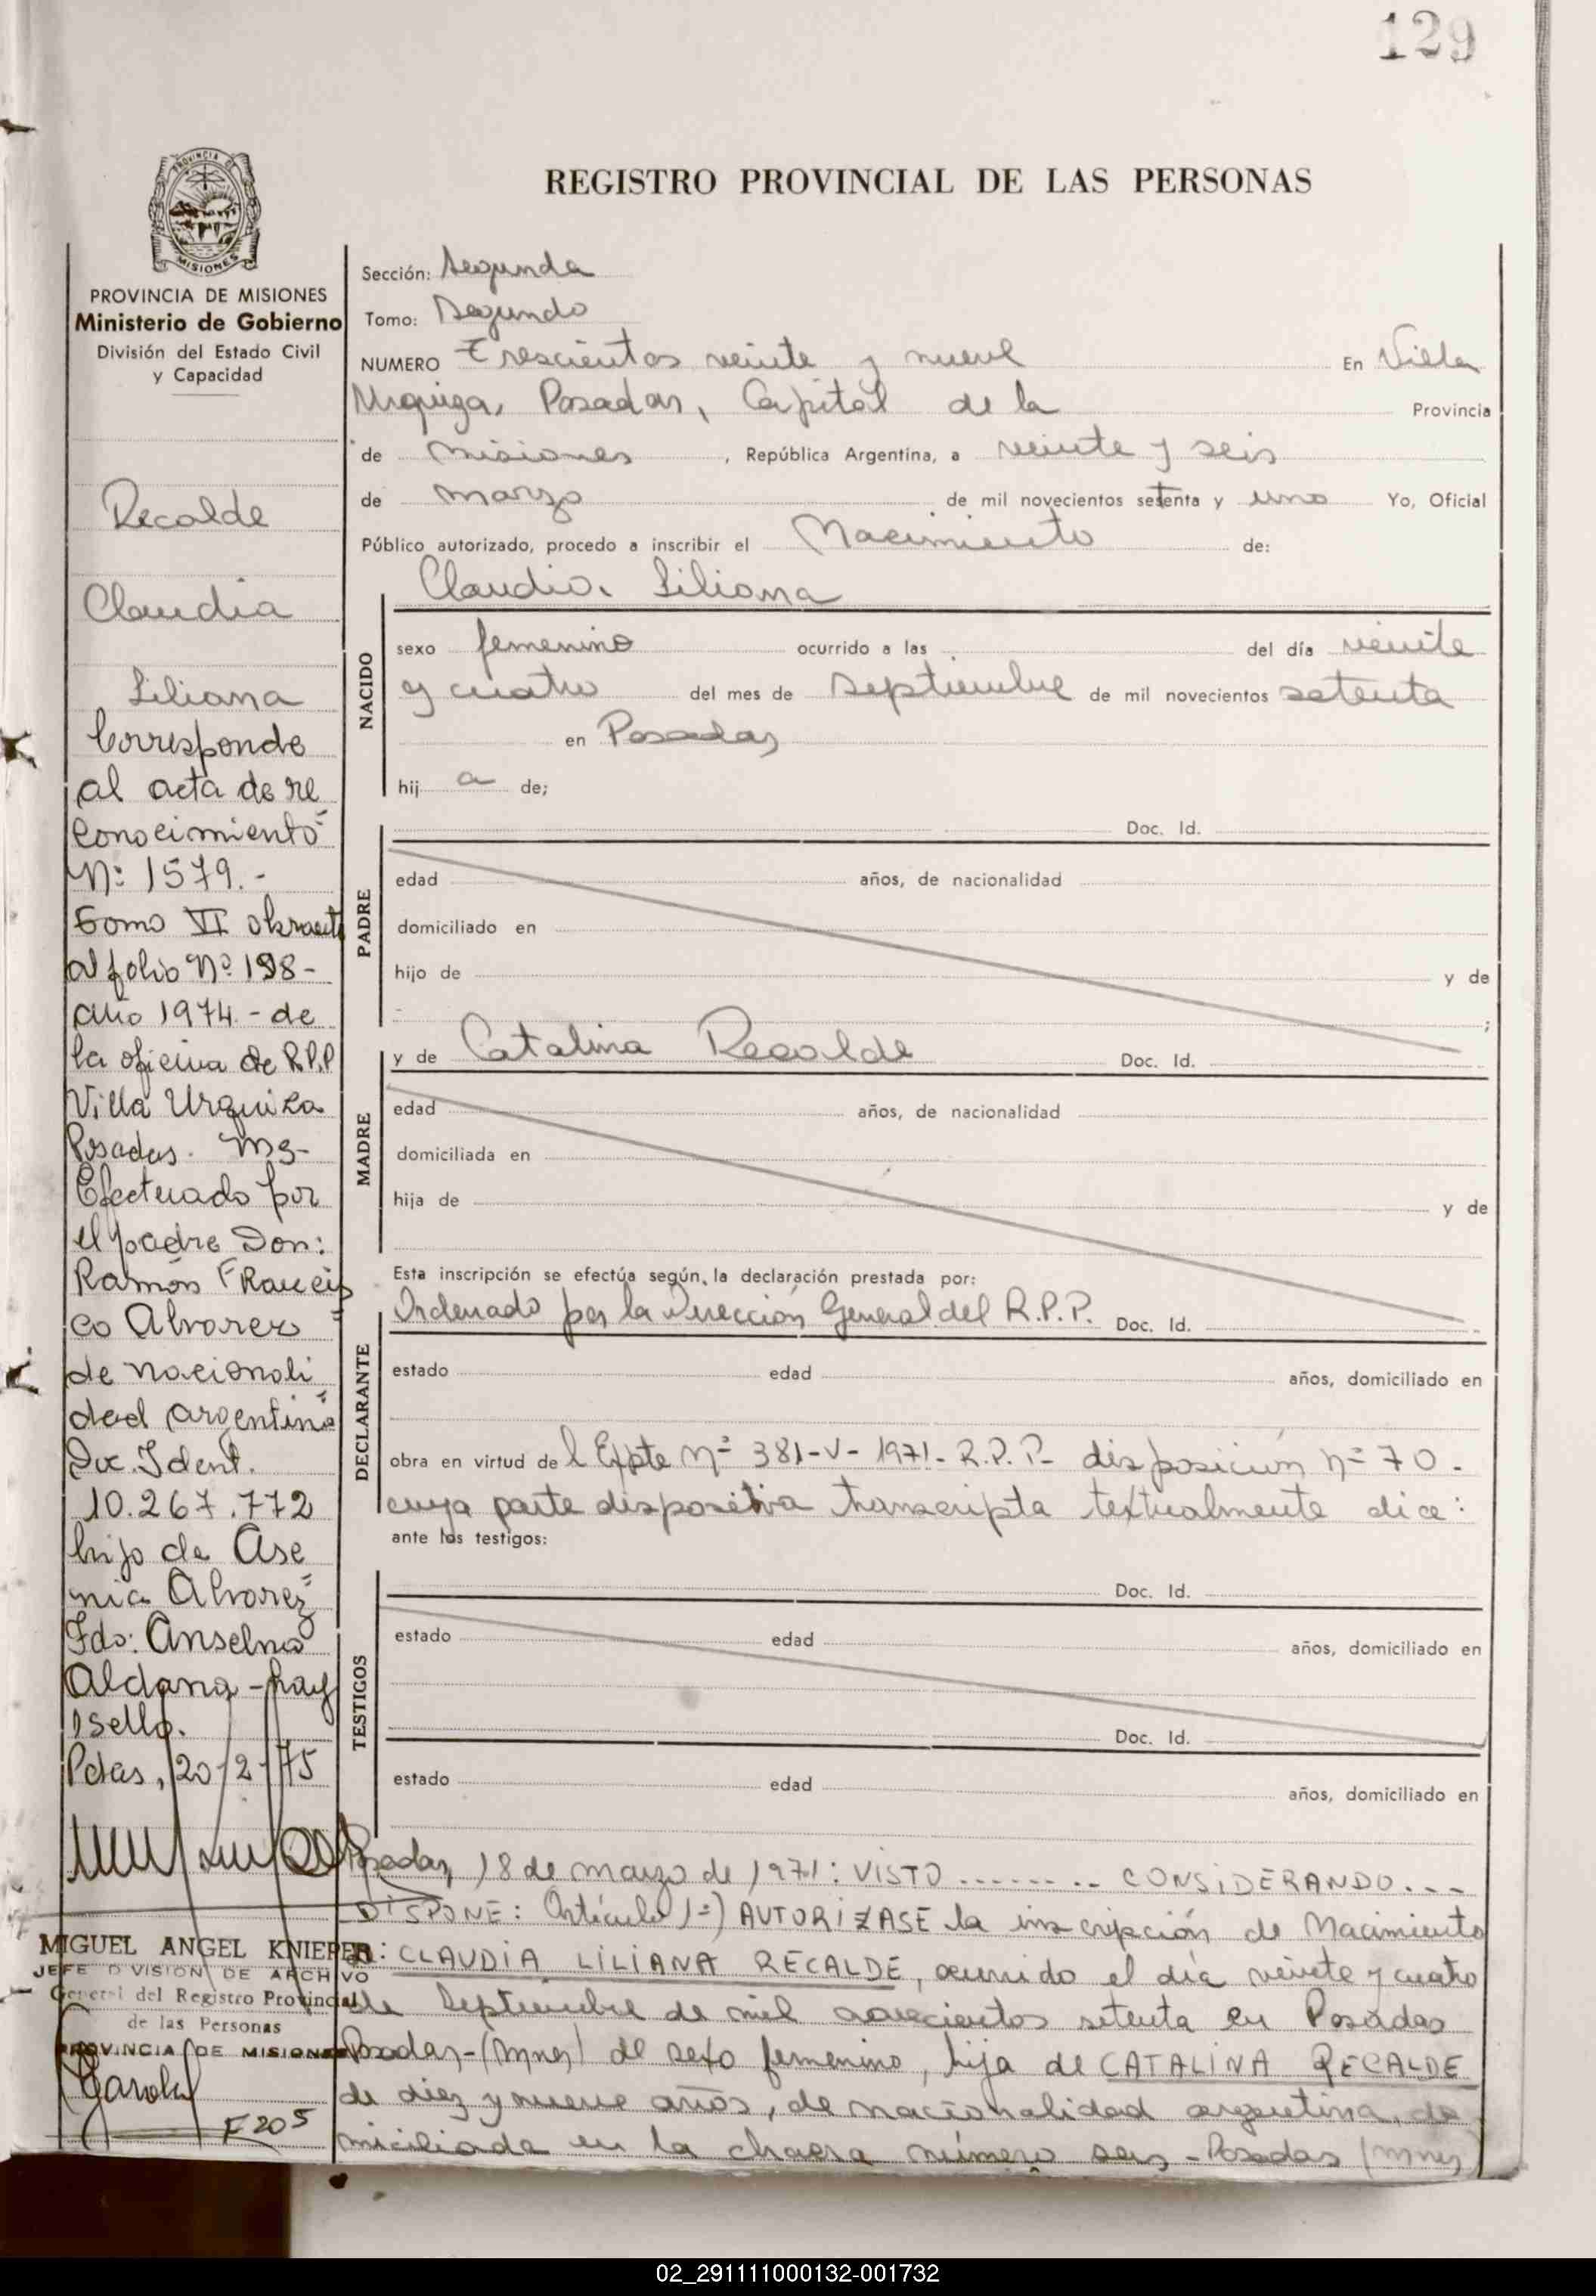 129
REGISTRO PROVINCIAL DE LAS PERSONAS
PROVINCIA DE MISIONES
PROVINCIA DE MISIONES
Ministerio de Gobierno
División del Estado Civil
y Capacidad
Recalde
Claudia
Liliana
Corresponde
al acta de re
conocimiento
Nº 1579.-
Tomo VI obrante
al folio Nº 198-
año 1974.- de
la oficina de R.P.P
Villa Urquiza
Posadas. Ms-
Efectuado por
el padre Don:
Ramón Francis
co Alvarez
de nacionali
dad argentina
Doc. Ident.
10.267.772
hijo de Ase
nia Alvarez
Fdo: Anselmo
Aldana - hay
1 sello.
Pdas, 20-2-75
MIGUEL ANGEL KNIEPER
JEFE DIVISION DE ARCHIVO
General del Registro Provincial
de las Personas
PROVINCIA DE MISIONES
F 205
Sección: Segunda
Tomo: Segundo
NUMERO Trescientos veinte y nueve En Villa
Urquiza, Posadas, Capital de la Provincia
de Misiones, República Argentina, a veinte y seis
de marzo de mil novecientos setenta y uno Yo, Oficial
Público autorizado, procedo a inscribir el Nacimiento de:
Claudia Liliana
NACIDO
sexo femenino ocurrido a las del día veinte
y cuatro del mes de Septiembre de mil novecientos setenta
en Posadas
hij a de;
Doc. Id.
PADRE
edad años, de nacionalidad
domiciliado en
hijo de y de
;
y de Catalina Recalde Doc. Id.
MADRE
edad años, de nacionalidad
domiciliada en
hija de y de
Esta inscripción se efectúa según, la declaración prestada por:
Ordenado por la Dirección General del R.P.P. Doc. Id.
DECLARANTE
estado edad años, domiciliado en
obra en virtud del Expte nº 381-V-1971-R.P.P- disposición nº 70-
cuya parte dispositiva transcripta textualmente dice:
ante los testigos:
Doc. Id.
TESTIGOS
estado edad años, domiciliado en
Doc. Id.
estado edad años, domiciliado en
Posadas, 18 de marzo de 1971: VISTO ........ CONSIDERANDO...
DISPONE: Artículo 1º) AUTORIZASE la inscripción de Nacimiento
de: CLAUDIA LILIANA RECALDE, ocurrido el día veinte y cuatro
de Septiembre de mil novecientos setenta en Posadas
Posadas-(Mnes) de sexo femenino, hija de CATALINA RECALDE
de diez y nueve años, de nacionalidad argentina, do
miciliada en la chacra número seis - Posadas (Mnes)
02_291111000132-001732